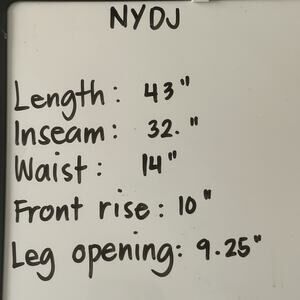 NYDJ
Length: 43"
Inseam: 32."
Waist: 14"
Front rise: 10"
Leg opening: 9.25"